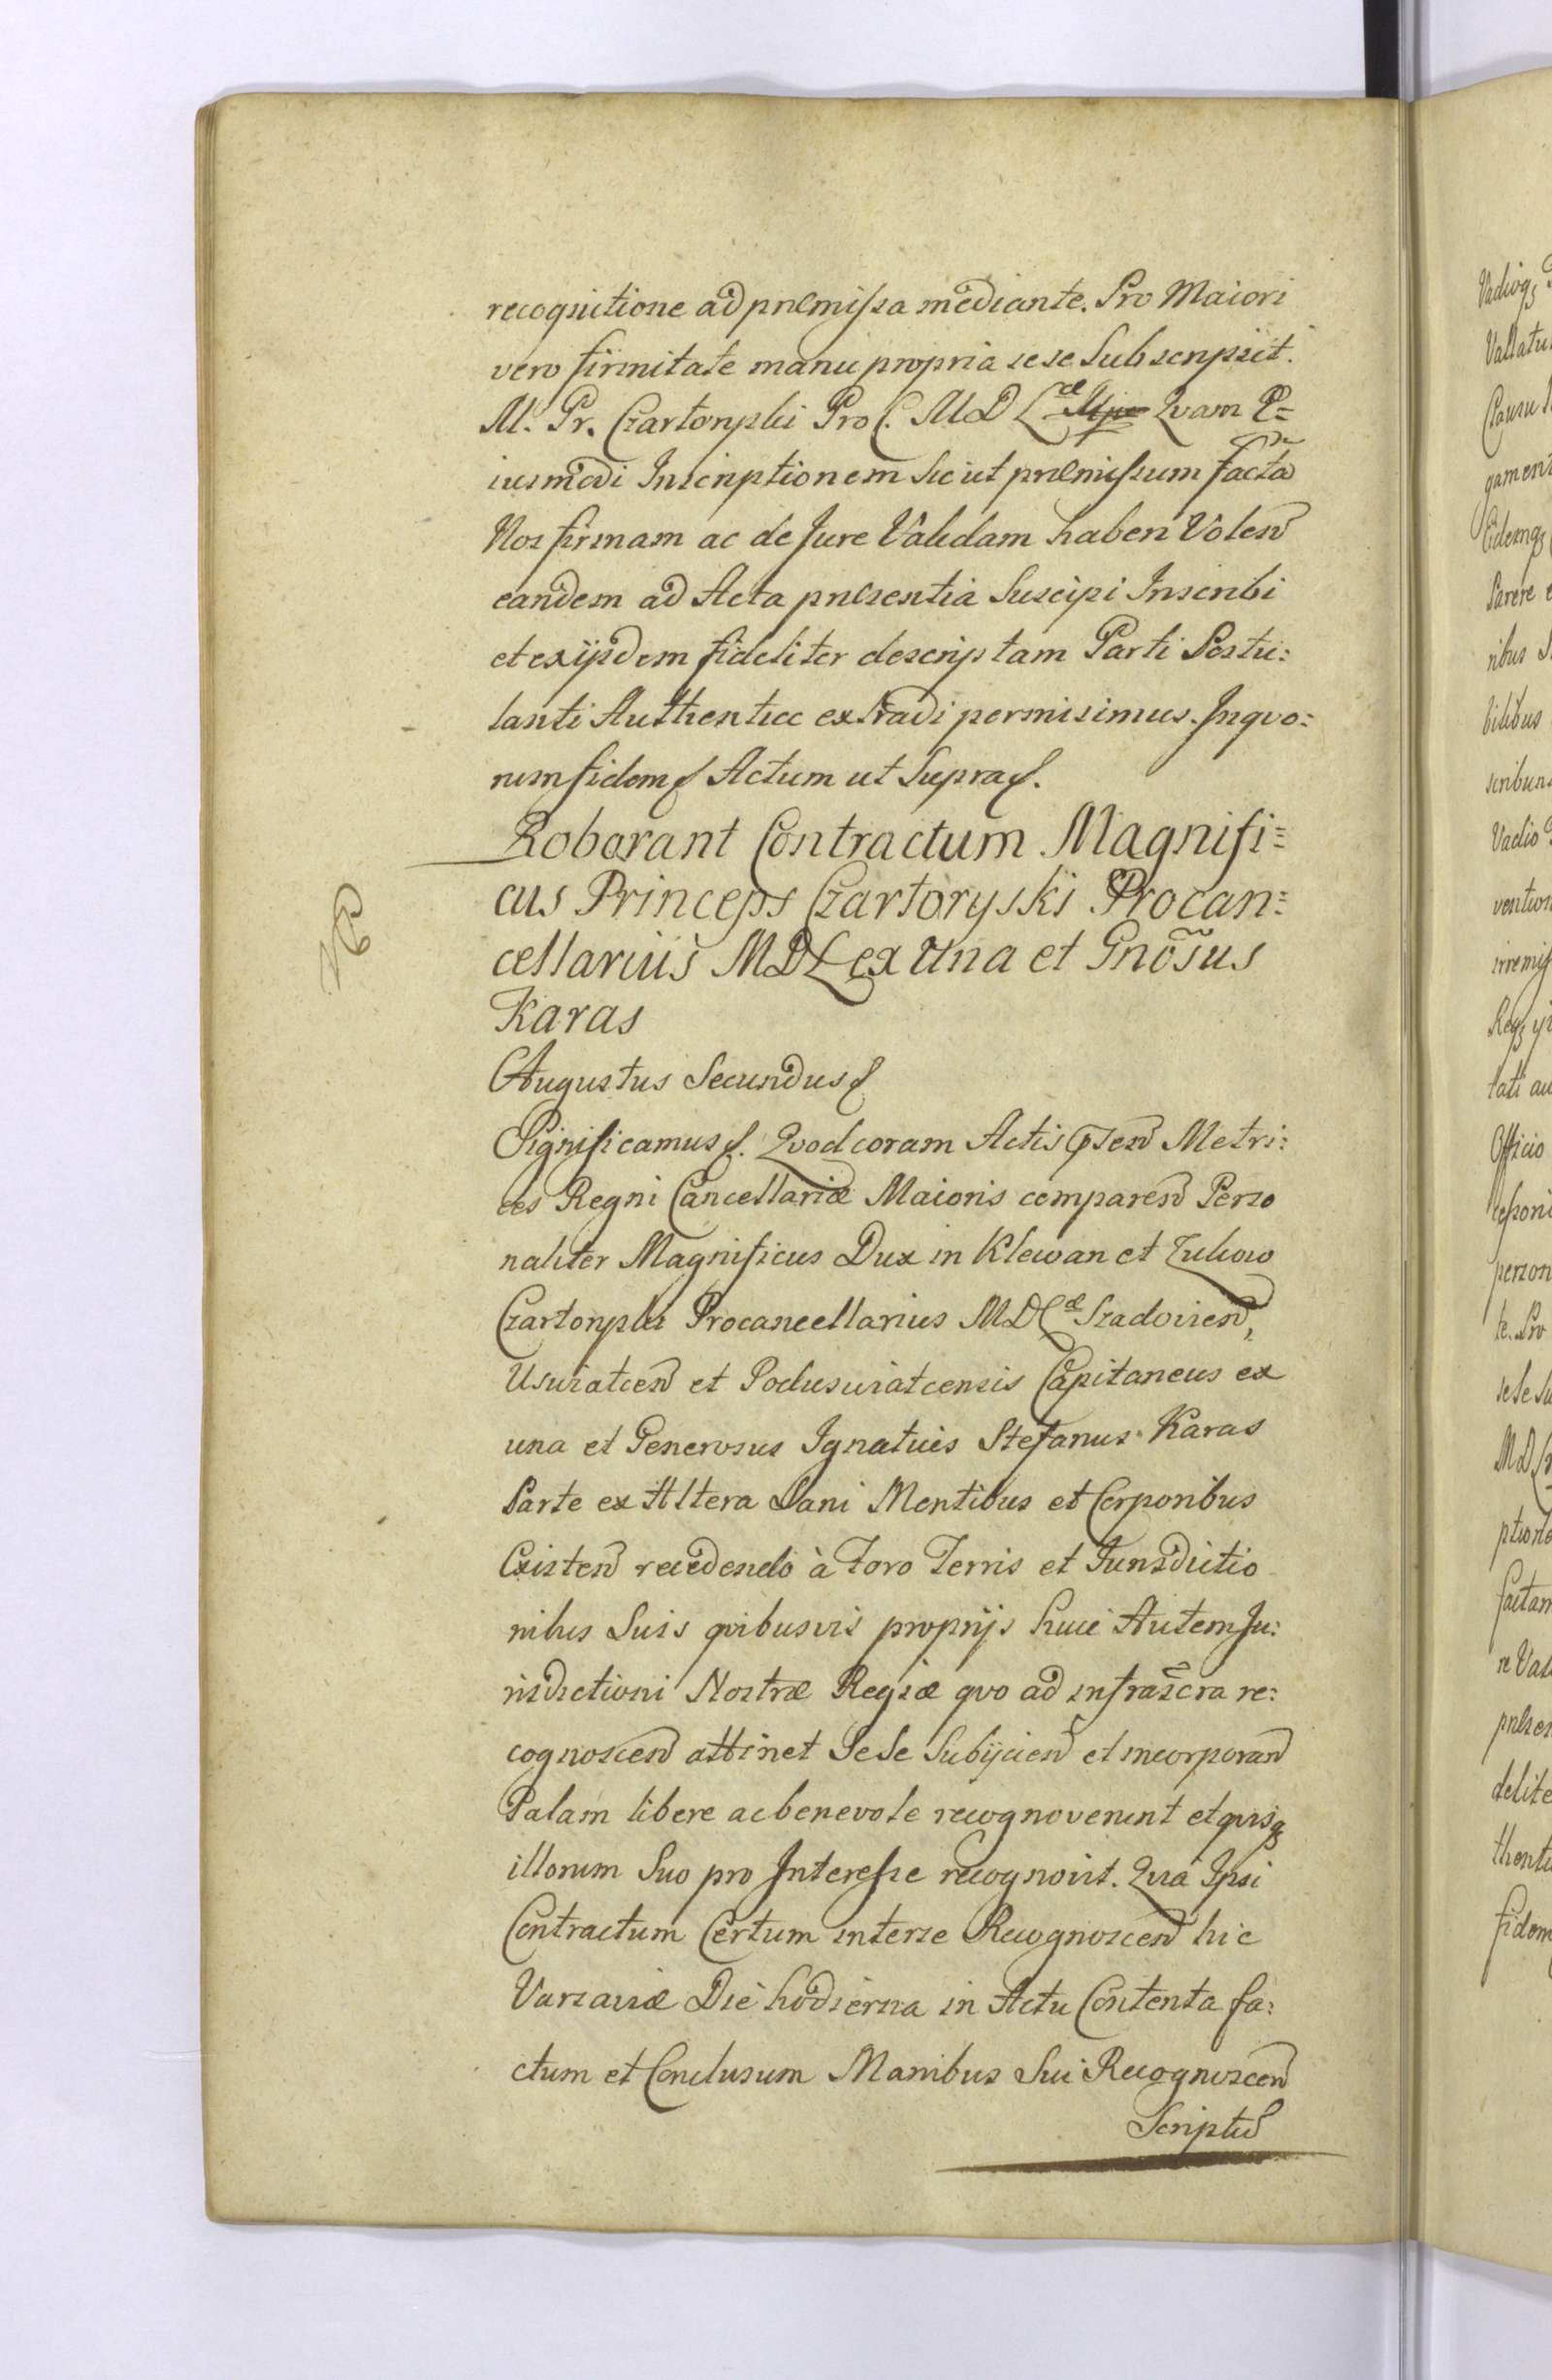 recognitione ad præmissa mediante. Pro Maiori
vero firmitate manu propria sese Subscripsit.
M. Pr. Czartoryski Pro C. MD L Quam E=
iusmodi Inscriptionem Sic ut præmissum facta
Nos firmam ac de Jure Validam haberi Volen
eandem ad Acta præsentia Suscipi Inscribi
et ex ijsdem fideliter descriptam Parti Postu:
lanti Authentice extradi permisimus. In quo:
rum fidem Actum ut Supra.
Roborant Contractum Magnifi=
cus Princeps Czartoryski Procan=
cellarius MDL ex Una et Gnosus
Karas
Augustus Secundus
Significamus. Quod coram Actis psen Metri:
ces Regni Cancellariæ Maioris comparen Perso
naliter Magnificus Dux in Klewan et Zukow
Czartoryski Procancellarius MDL Szadovien,
Usviatcen et Podusviatcensis Capitaneus ex
una et Generosus Ignatius Stefanus Karas
Parte ex Altera Sani Mentibus et Corporibus
Existen recedendo à Foro Terris et Jurisdictio
nibus Suis quibusvis proprijs huic Autem Ju:
risdictioni Nostræ Regiæ quo ad infrascra re:
cognoscen attinet Sese Subijcien et incorporan
Palam libere ac benevole recognoverunt et quisq
illorum Suo pro Interesse recognovit. Quia Ipsi
Contractum Certum inter se Recognoscen hic
Varsaviæ Die hodierna in Actu Contenta fa:
ctum et Conclusum Manibus Sui Recognoscen
Scriptu